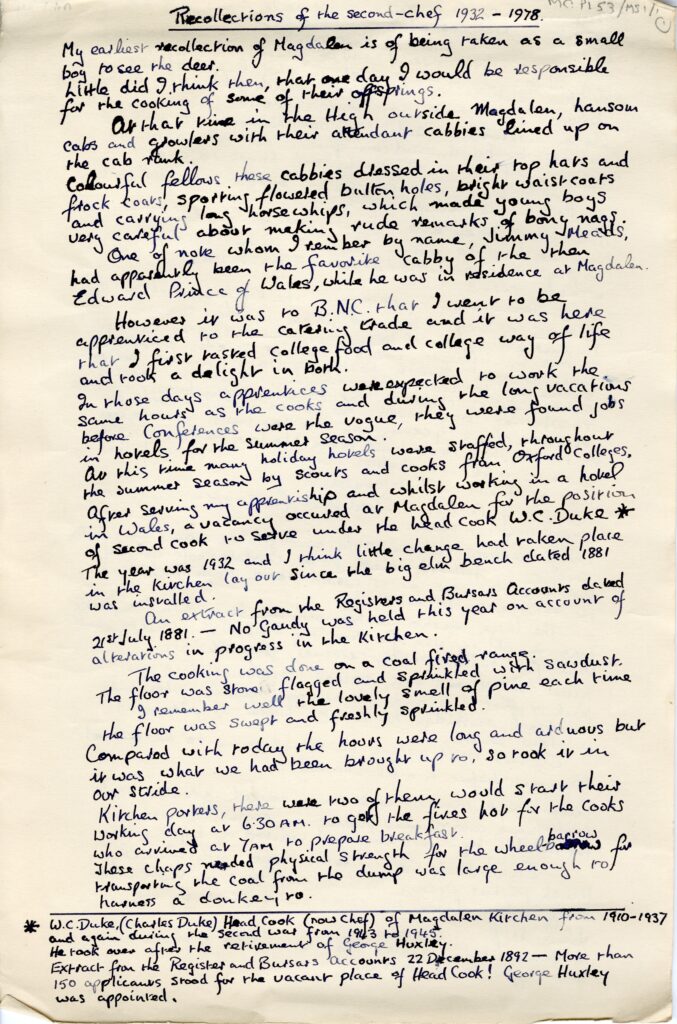 MC:P153/MS1/1
Recollections of the second-chef 1932 - 1978.
My earliest recollection of Magdalen is of being taken as a small
boy to see the deer.
Little did I think then, that one day I would be responsible
for the cooking of some of their offsprings.
At that time in the High outside Magdalen, hansom
cabs and growlers with their attendant cabbies lined up on
the cab rank.
Colourful fellows these cabbies dressed in their top hats and
frock coats, sporting flowered button holes, bright waistcoats
and carrying long horsewhips, which made young boys
very careful about making rude remarks of bony nags.
One of note whom I rember by name, Jimmy Meads,
had apparently been the favorite cabby of the then
Edward Prince of Wales, while he was in residence at Magdalen.
However it was to B.N.C. that I went to be
apprenticed to the catering trade and it was here
that I first tasted college food and college way of life
and took a delight in both.
In those days apprentices were expected to work the
same hours as the cooks and during the long vacations
before Conferences were the vogue, they were found jobs
in hotels for the summer season.
At this time many holiday hotels were staffed, throughout
the summer season by scouts and cooks from Oxford Colleges.
After serving my apprentiship and whilst working in a hotel
in Wales, a vacancy occured at Magdalen for the position
of second cook to serve under the head cook W.C. Duke *
The year was 1932 and I think little change had taken place
in the kitchen lay out since the big elm bench dated 1881
was installed.
An extract from the Registers and Bursars Accounts dated
21st July 1881. — No Gaudy was held this year on account of
alterations in progress in the Kitchen.
The cooking was done on a coal fired range.
The floor was stone flagged and sprinkled with sawdust.
I remember well the lovely smell of pine each time
the floor was swept and freshly sprinkled.
Compared with today the hours were long and arduous but
it was what we had been brought up to, so took it in
our stride.
Kitchen porters, there were two of them, would start their
working day at 6.30 A.M. to get the fires hot for the cooks
who arrived at 7AM to prepare breakfast.
These chaps needed physical strength for the wheelbarrow for
transporting the coal from the dump was large enough to
harness a donkey to.
* W.C. Duke, (Charles Duke) Head Cook (now Chef) of Magdalen Kitchen from 1910-1937
and again during the second war from 1943 to 1945.
He took over after the retirement of George Huxley.
Extract from the Register and Bursars Accounts 22 December 1892 — More than
150 applicants stood for the vacant place of Head Cook! George Huxley
was appointed.